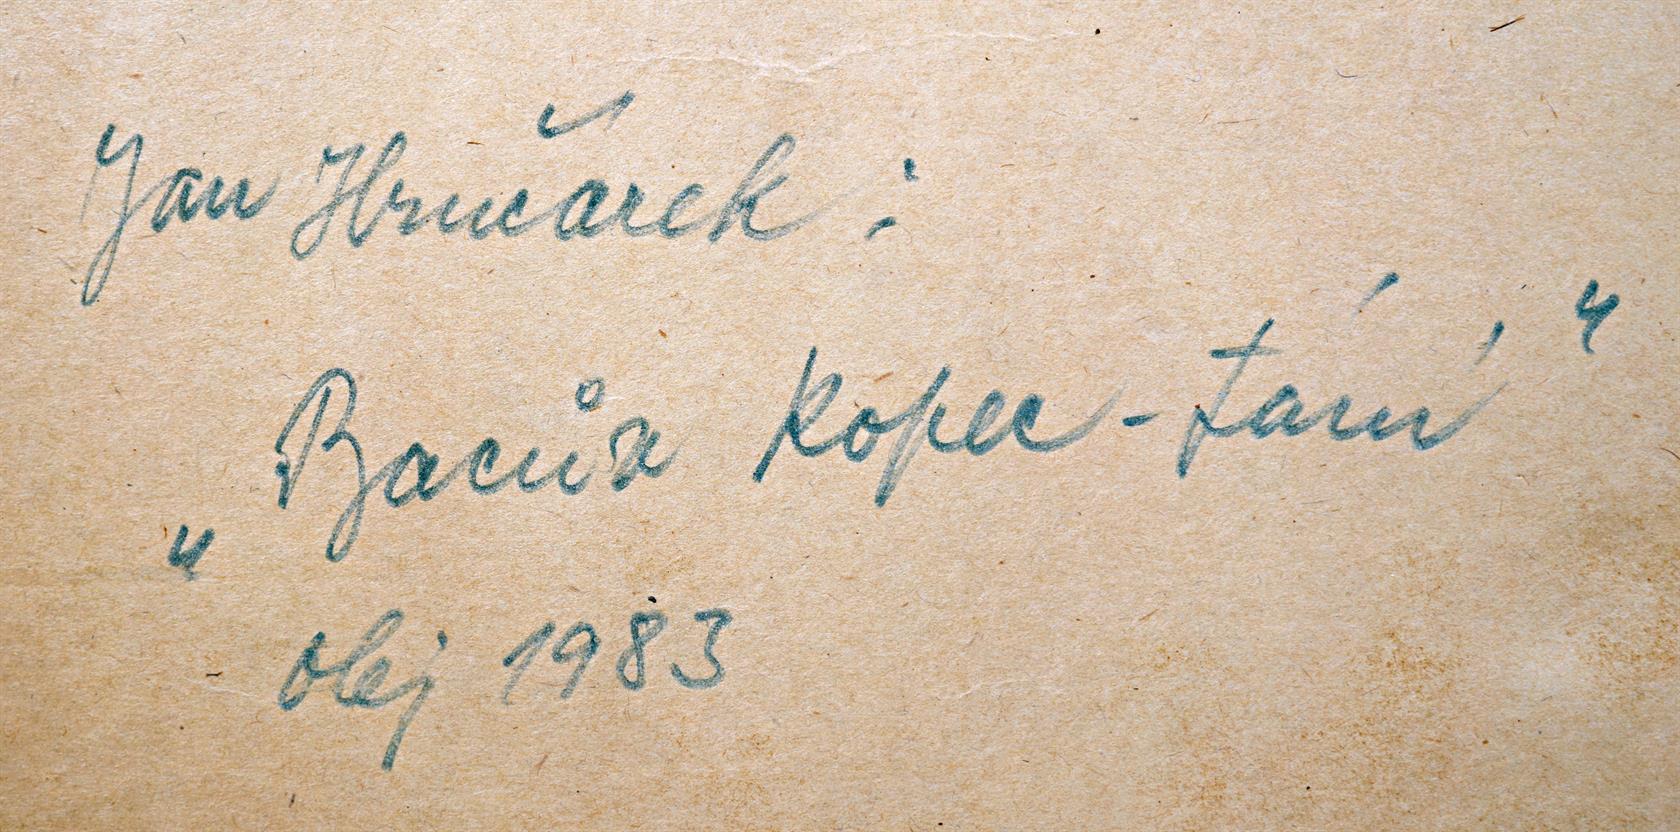 Jan Hrnčárek :
„Bacův kopec - tání"
olej 1983